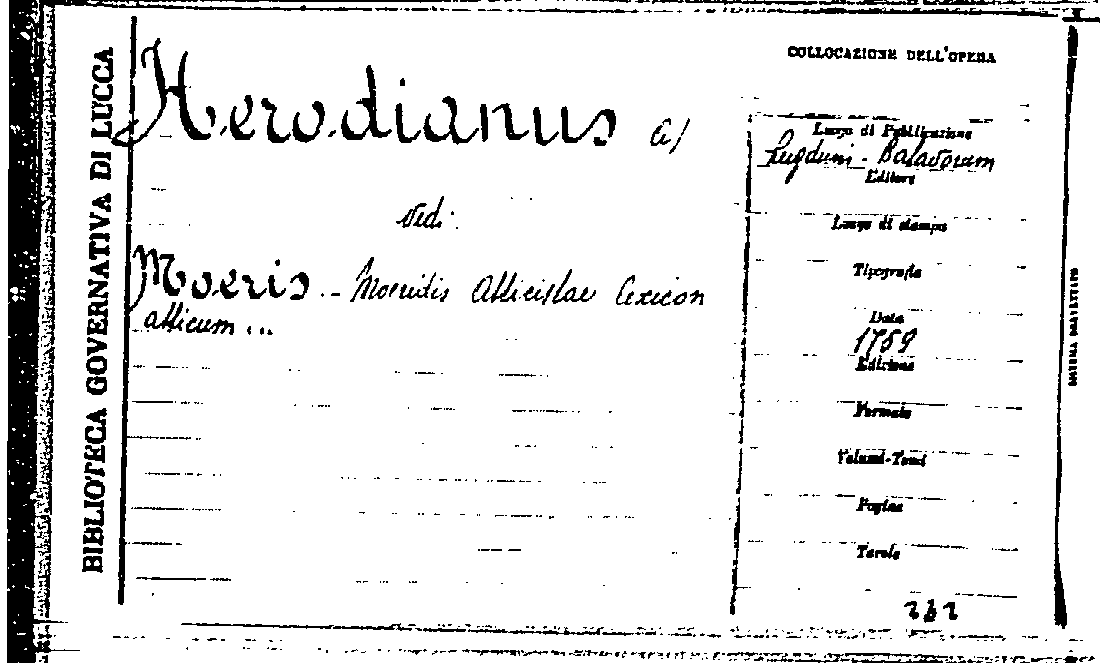 BIBLIOTECA GOVERNATIVA DI LUCCA
Herodianus a)
Vedi:
Moeris.- Moeridis Atticistae Lexicon
atticum ...
COLLOCAZIONE DELL'OPERA
Luogo di Pubblicazione
Lugduni-Batavorum
Editore
Luogo di stampa
Tipografia
Data
1759
Edizione
Formato
Volumi-Tomi
Pagine
Tavole